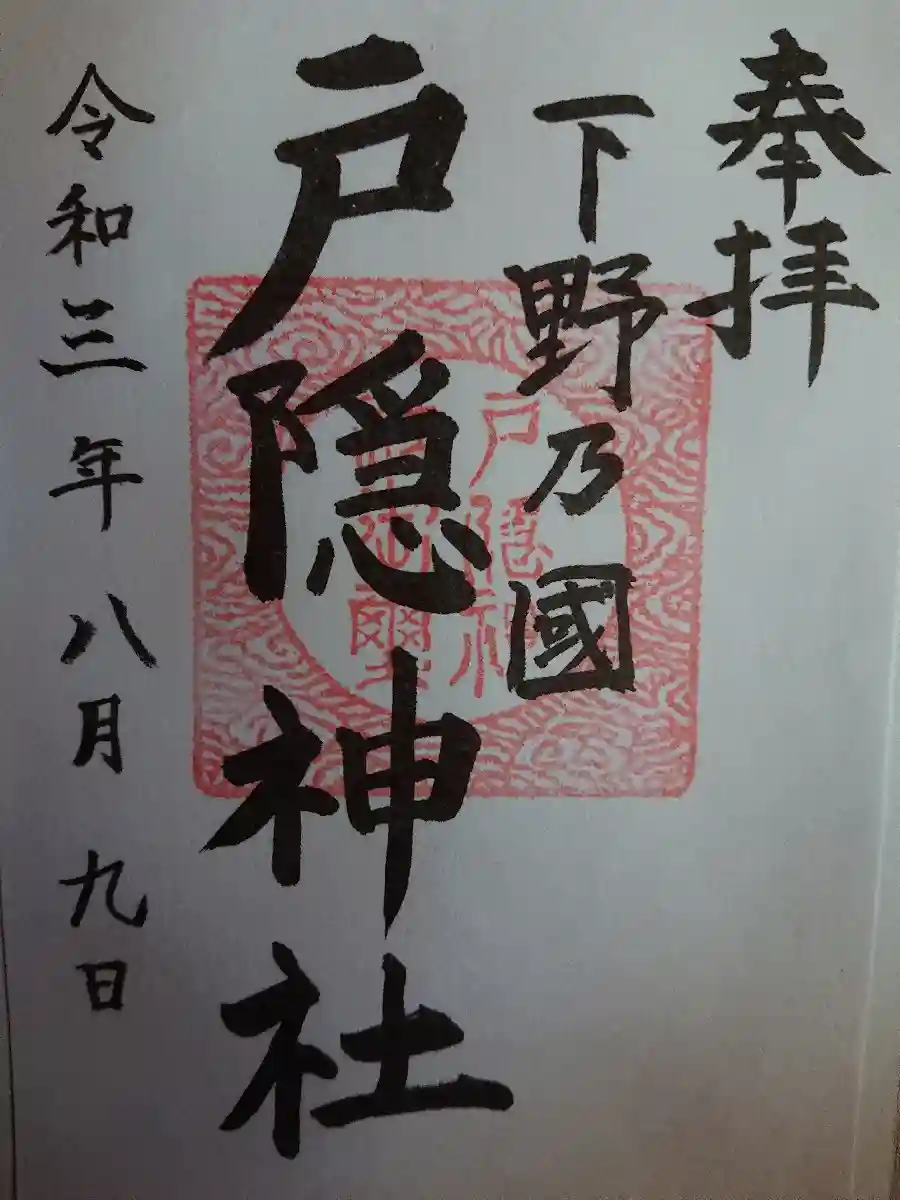 奉拝
下野乃國
戸隠神社
令和三年八月九日
戸隠神